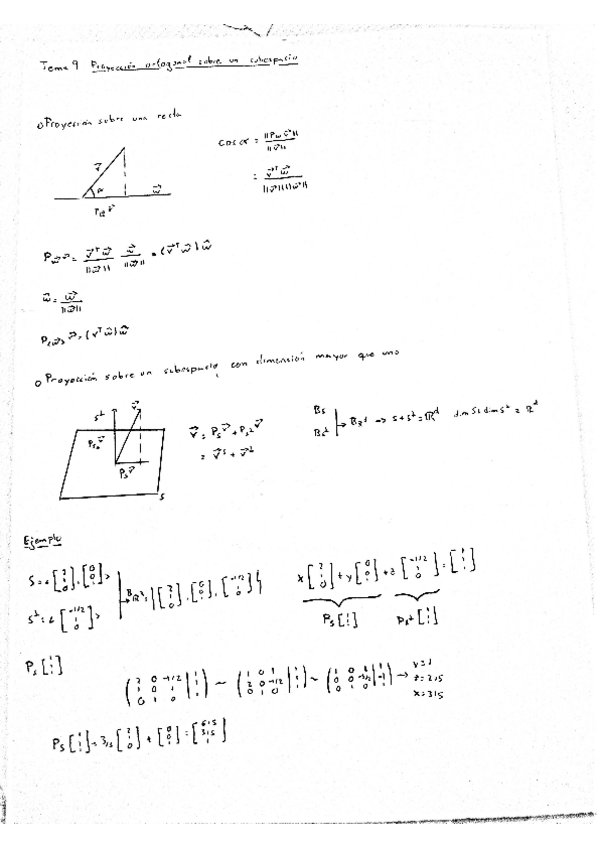 Tema 9 Proyección ortogonal sobre un subespacio
o) Proyección sobre una recta
cos α = ||P_w v⃗|| / ||v⃗||
= v⃗ᵀ w⃗ / ||v⃗|| ||w⃗||
v⃗
α
w⃗
P_w⃗ v⃗ = v⃗ᵀ w⃗ / ||w⃗|| w⃗ / ||w⃗|| = (v⃗ᵀ ŵ) ŵ
ŵ = w⃗ / ||w⃗||
P v⃗ = (vᵀ ŵ) ŵ
o Proyección sobre un subespacio, con dimensión mayor que uno
S⊥
v⃗
P_S⊥ v⃗
P_S v⃗
S
v⃗ = P_S v⃗ + P_S⊥ v⃗
= v⃗ˢ + v⃗⊥
B_S
B_S⊥
⇒ S + S⊥ = ℝᵈ
Ejemplo
S = < [2 1 0], [0 0 1] >
S⊥ = < [-1/2 1 0] >
B_ℝ³ = { [2 1 0], [0 0 1], [-1/2 1 0] }
x [2 1 0] + y [0 0 1] + z [-1/2 1 0] = [1 1 1]
P_S [1 1 1]
P_S⊥ [1 1 1]
P_S [1 1 1]
(2 0 -1/2 | 1
1 0 1 | 1
0 1 0 | 1)
~
(1 0 1 | 1
2 0 -1/2 | 1
0 1 0 | 1)
~
→ y=1
z=2/5
x=3/5
P_S [1 1 1] = 3/5 [2 1 0] + [0 0 1] = [6/5 3/5 1]